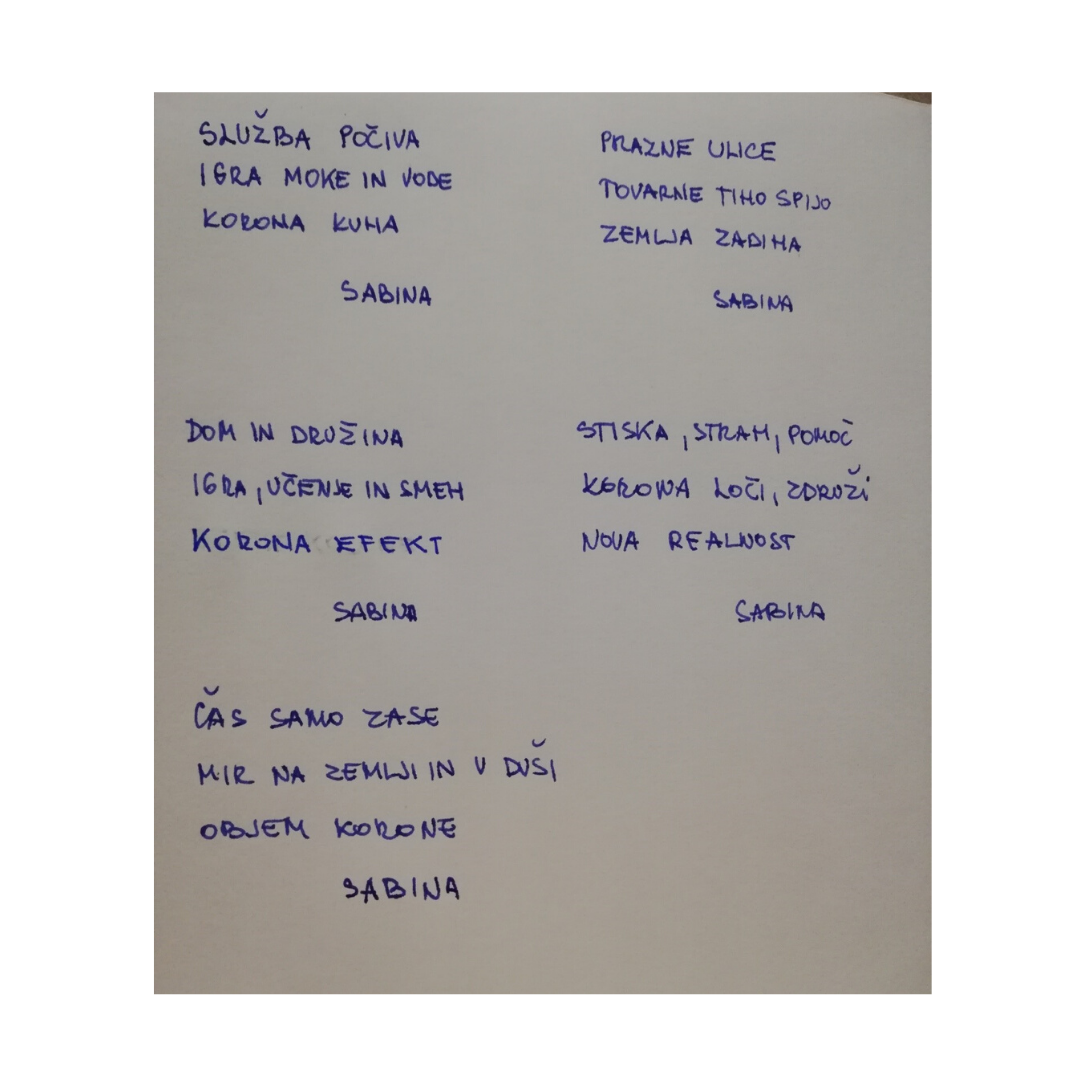 SLUŽBA POČIVA
IGRA MOKE IN VODE
KORONA KUHA
SABINA
PRAZNE ULICE
TOVARNE TIHO SPIJO
ZEMLJA ZADIHA
SABINA
DOM IN DRUŽINA
IGRA, UČENJE IN SMEH
KORONA EFEKT
SABINA
STISKA, STRAH, POMOČ
KORONA LOČI, ZDRUŽI
NOVA REALNOST
SABINA
ČAS SAMO ZASE
MIR NA ZEMLJI IN V DUŠI
OBJEM KORONE
SABINA